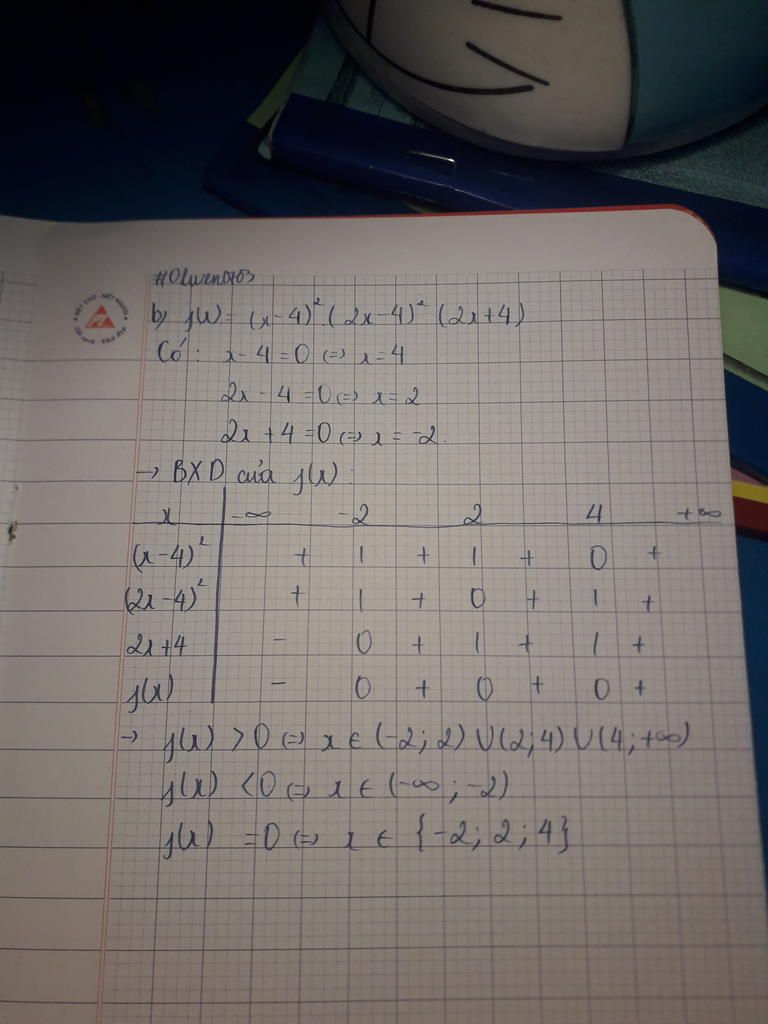 #Olwen0703
b, f(x) = (x-4)².(2x-4)² (2x+4)
Có: x-4=0 ⇔ x=4
2x-4=0 ⇔ x=2
2x+4=0 ⇔ x=-2.
→ BXD của f(x):
x -∞ -2 2 4 +∞
(x-4)² + | + | + 0 +
(2x-4)² + | + 0 + | +
2x+4 - 0 + | + | +
f(x) - 0 + 0 + 0 +
→ f(x) >0 ⇔ x ∈ (-2; 2) ∪ (2; 4) ∪ (4; +∞)
f(x) <0 ⇔ x ∈ (-∞; -2)
f(x) =0 ⇔ x ∈ {-2; 2; 4}